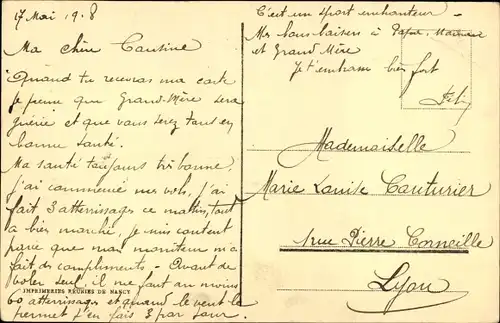 17 Mai 19 8
Ma chère Cousine
Quand tu recevras ma carte
je pense que Grand-Mère sera
guérie et que vous serez tous en
bonne santé.
Ma santé toujours très bonne,
j'ai commencé mes vols, j'ai
fait 3 atterrissages ce matin, tout
a bien marché, je suis content
parce que mon moniteur m'a
fait des compliments - Avant de
voler seul, il me faut au moins
60 atterrissages et quand le vent le
permet j'en fais 3 par jour.
IMPRIMERIES RÉUNIES DE NANCY
C'est un sport enchanteur -
Mes bons baisers à Papa, Maman
et Grand Mère
Je t'embrasse bien fort
Mademoiselle
Marie Louise Couturier
1 rue Pierre Corneille
Lyon